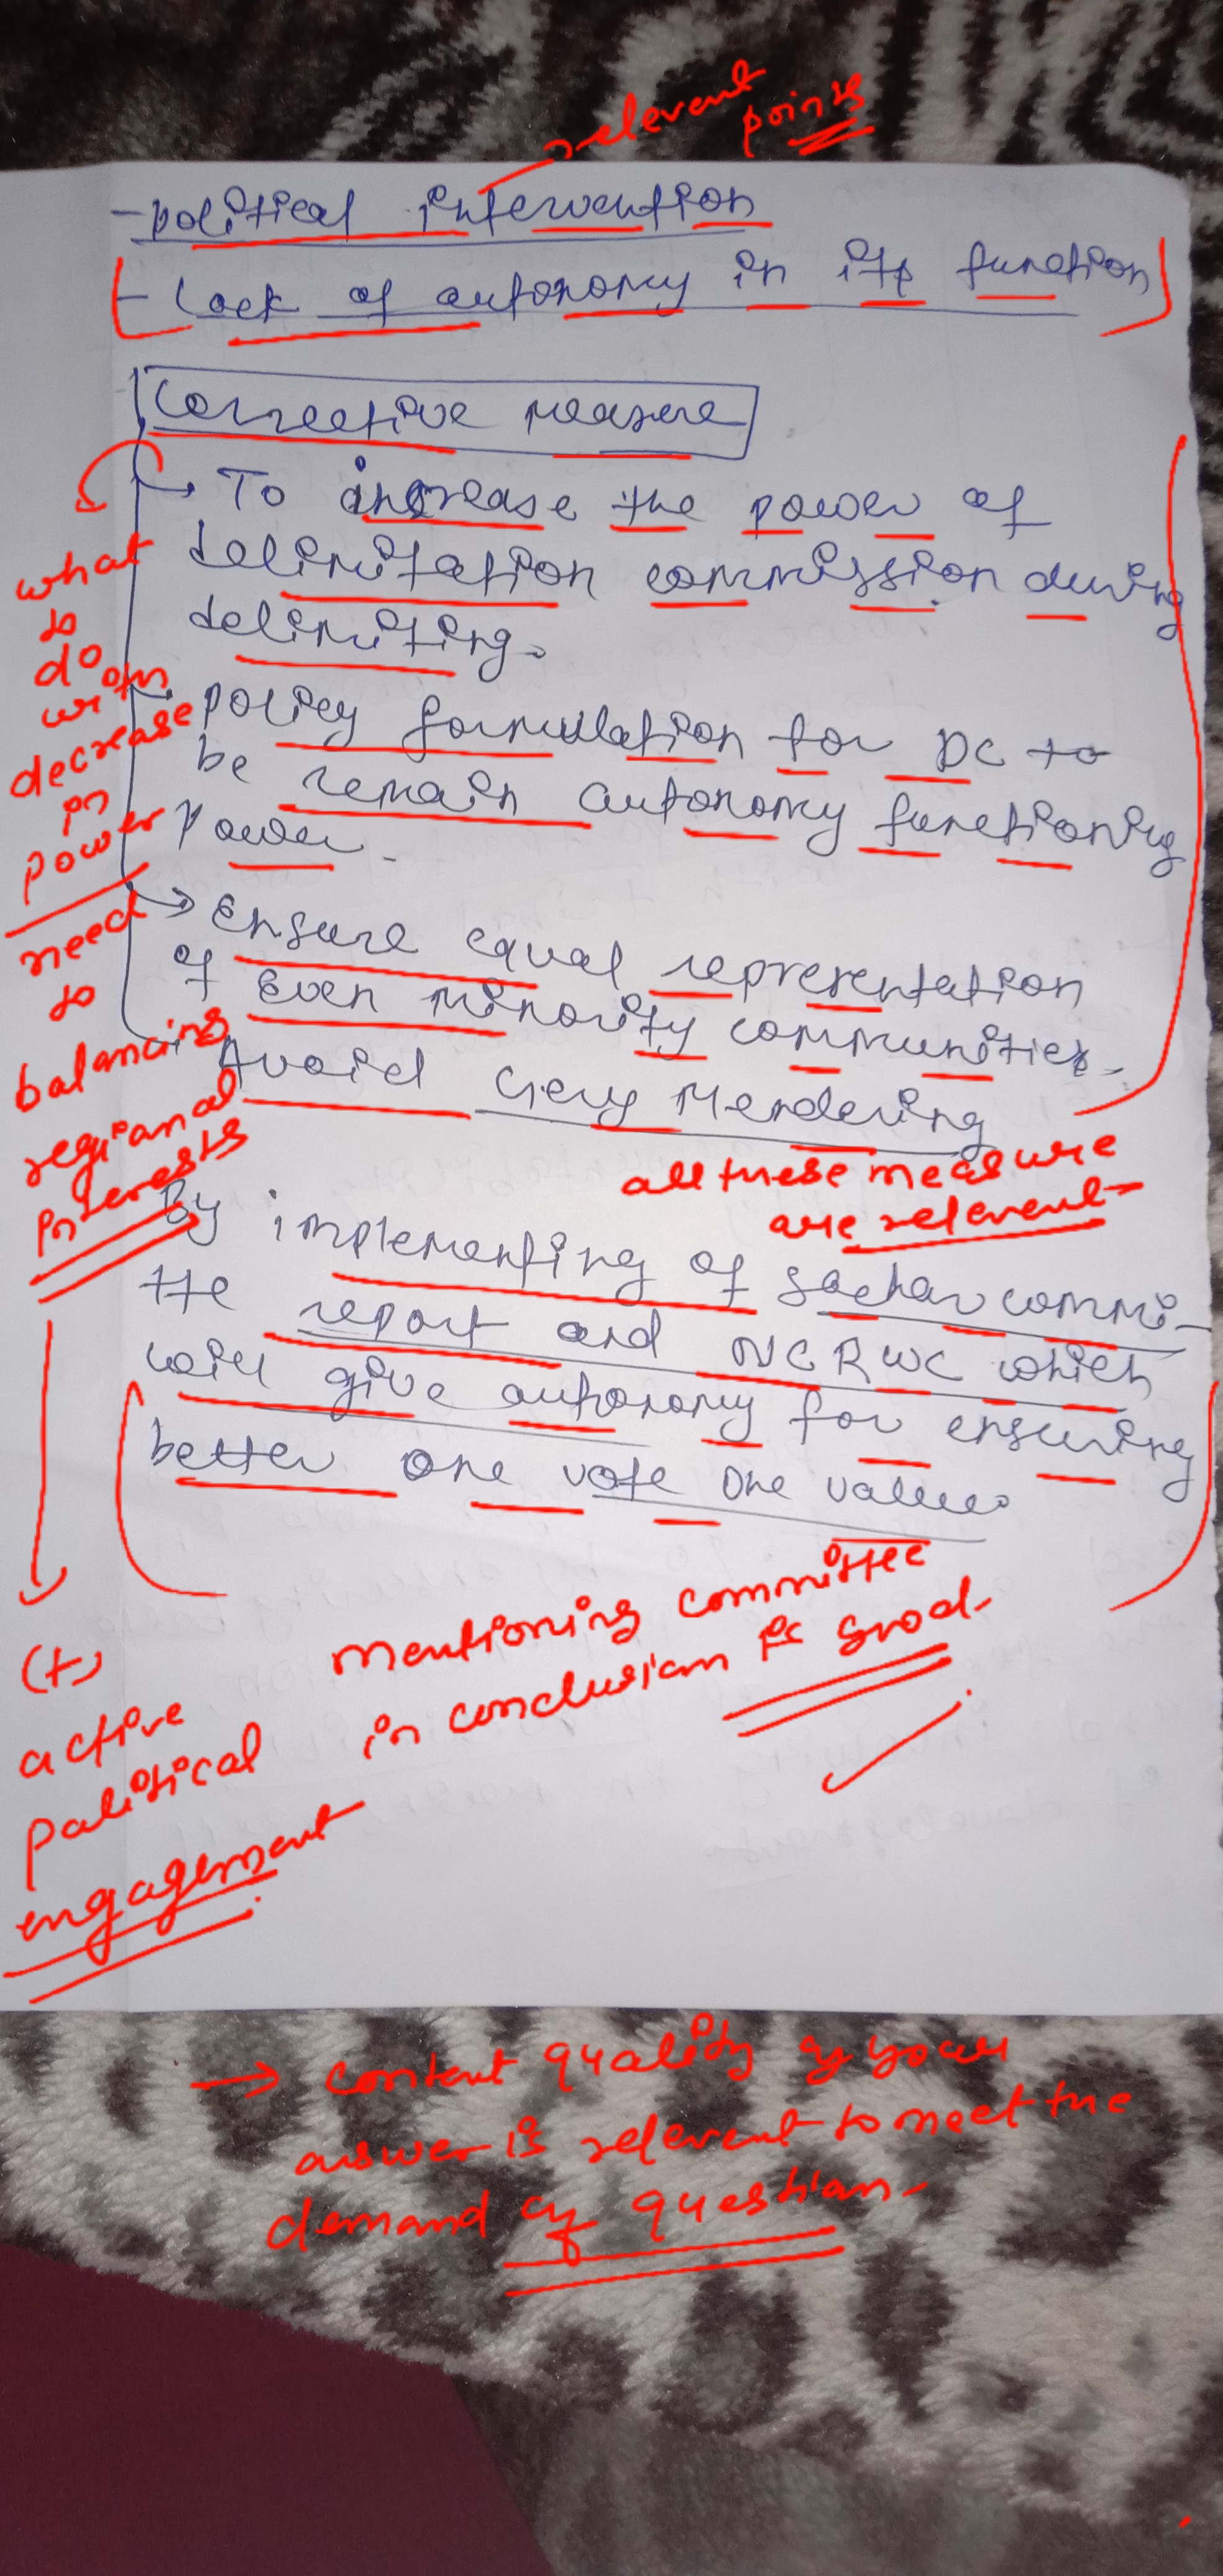 relevant
points
- political intervention
- Lack of autonomy in its function
Corrective measure
→ To increase the power of
delimitation commission during
delimiting.
→ policy formulation for DC to
be remain autonomy functioning
power.
→ Ensure equal representation
of Even minority communities.
→ Avoid Gerry Mendering
what
to
do
with
decrease
in
power
need
to
balancing
regional
interests
all these measure
are relevant
By implementing of sachar commi-
tte report and NCRWC which
will give autonomy for ensuring
better one vote one value.
(+)
active
political
engagement
Mentioning committee
in conclusion is good.
→ content quality of your
answer is relevant to meet the
demand of question.